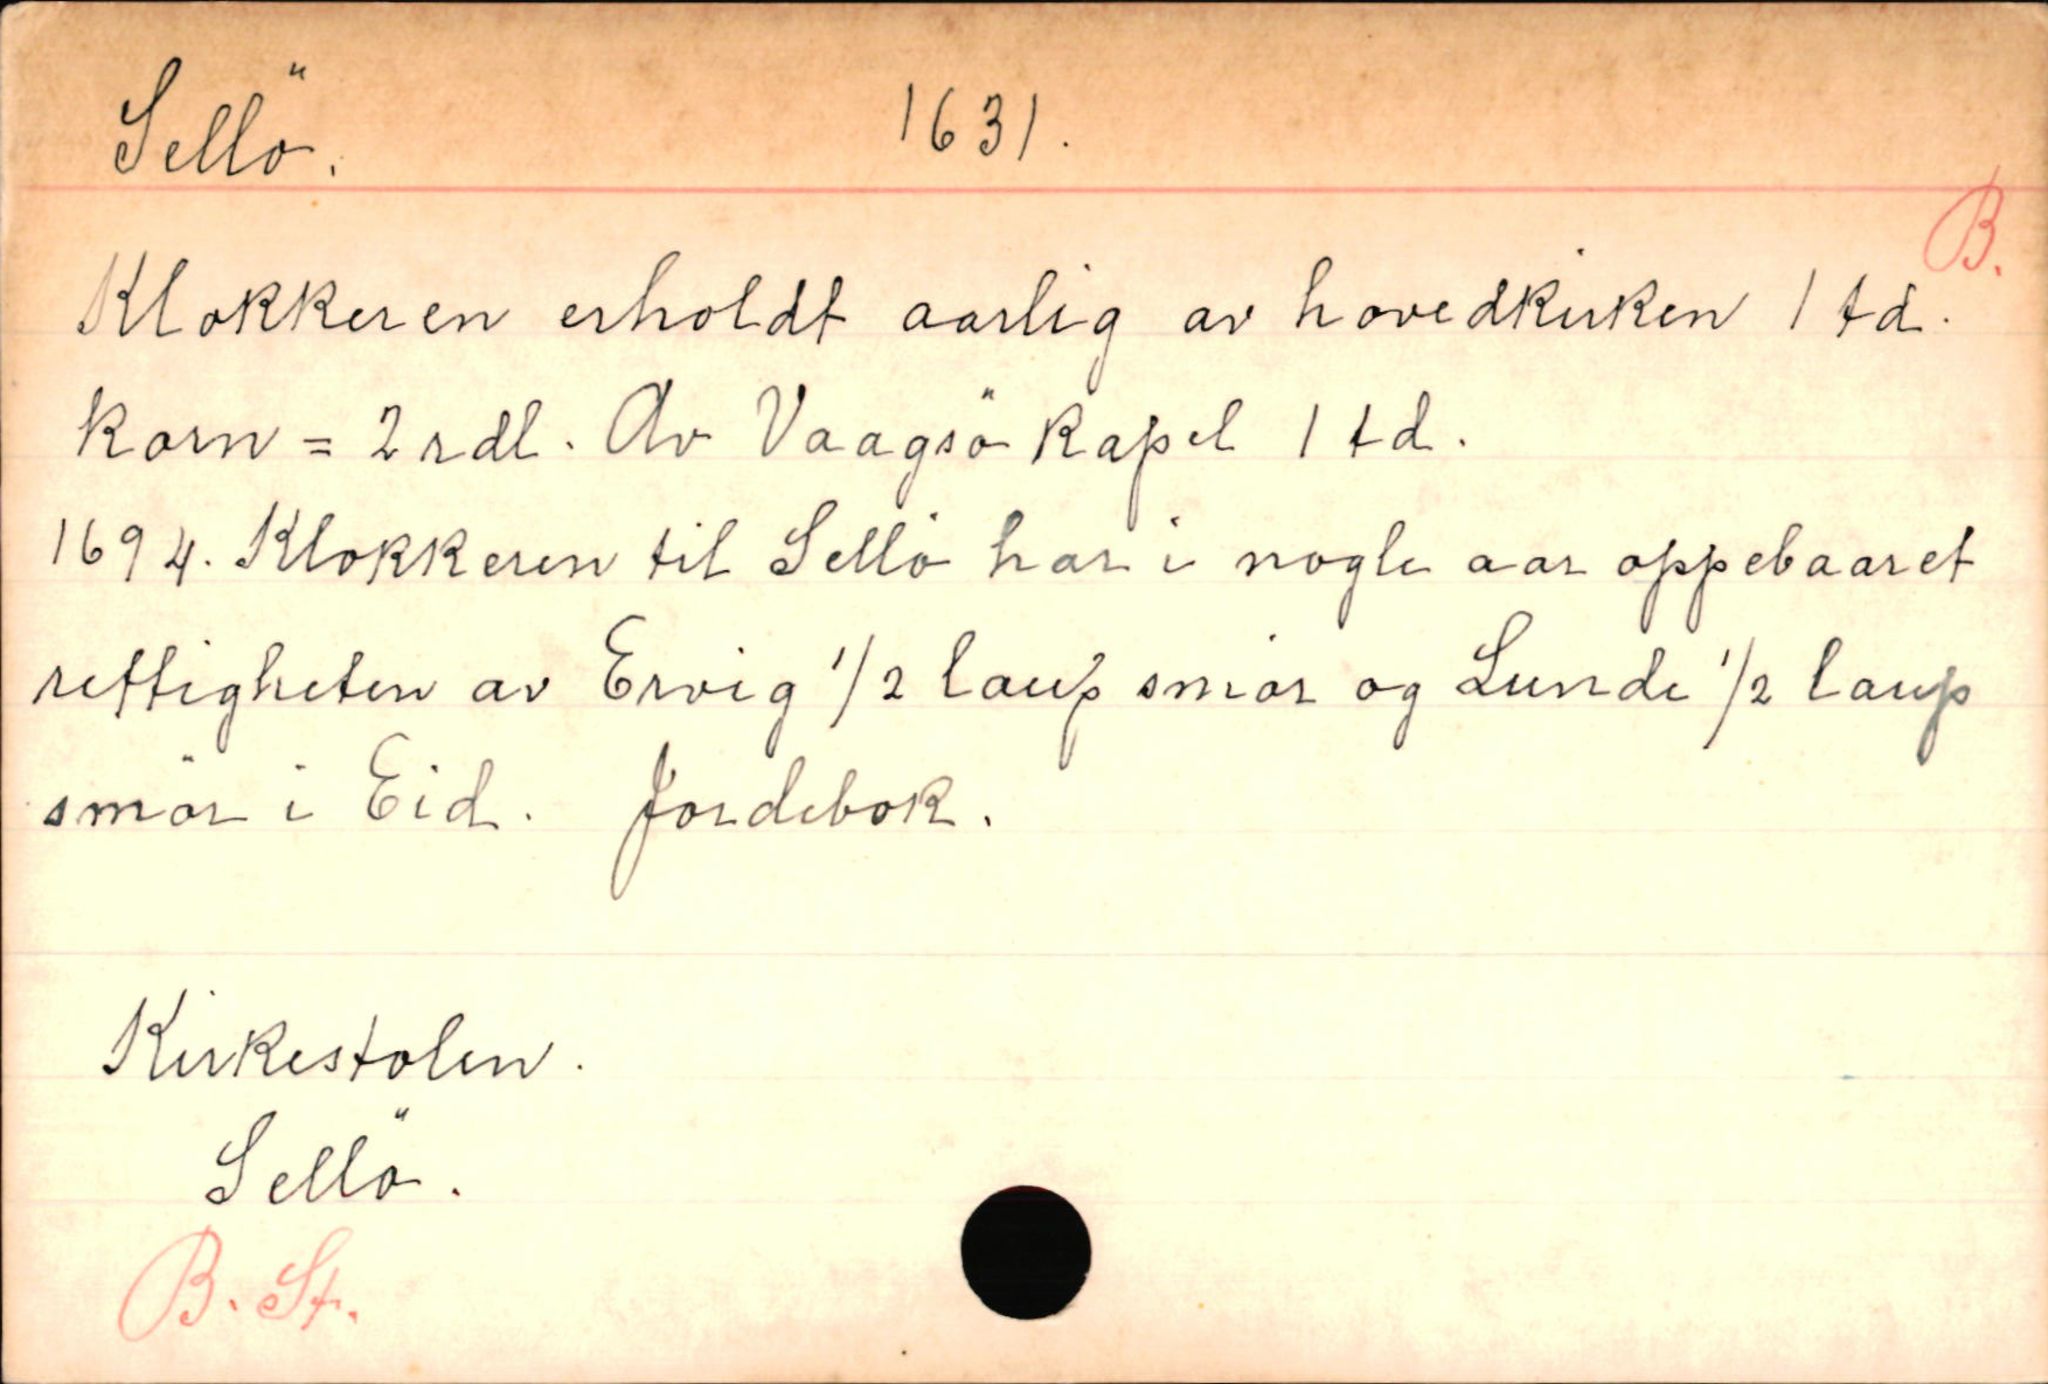 Sellö. 1631.
B.
Klokkeren erholdt aarlig av hovedkirken 1 td.
korn = 2 rdl. Av Vaagsö kapel 1 td.
1694. Klokkeren til Sellö har i nogle aar oppebaaret
rettigheten av Ervig 1/2 laup smör og Lunde 1/2 laup
smör i Eid. Jordebok.
Kirkestolen.
Sellö.
B. St.